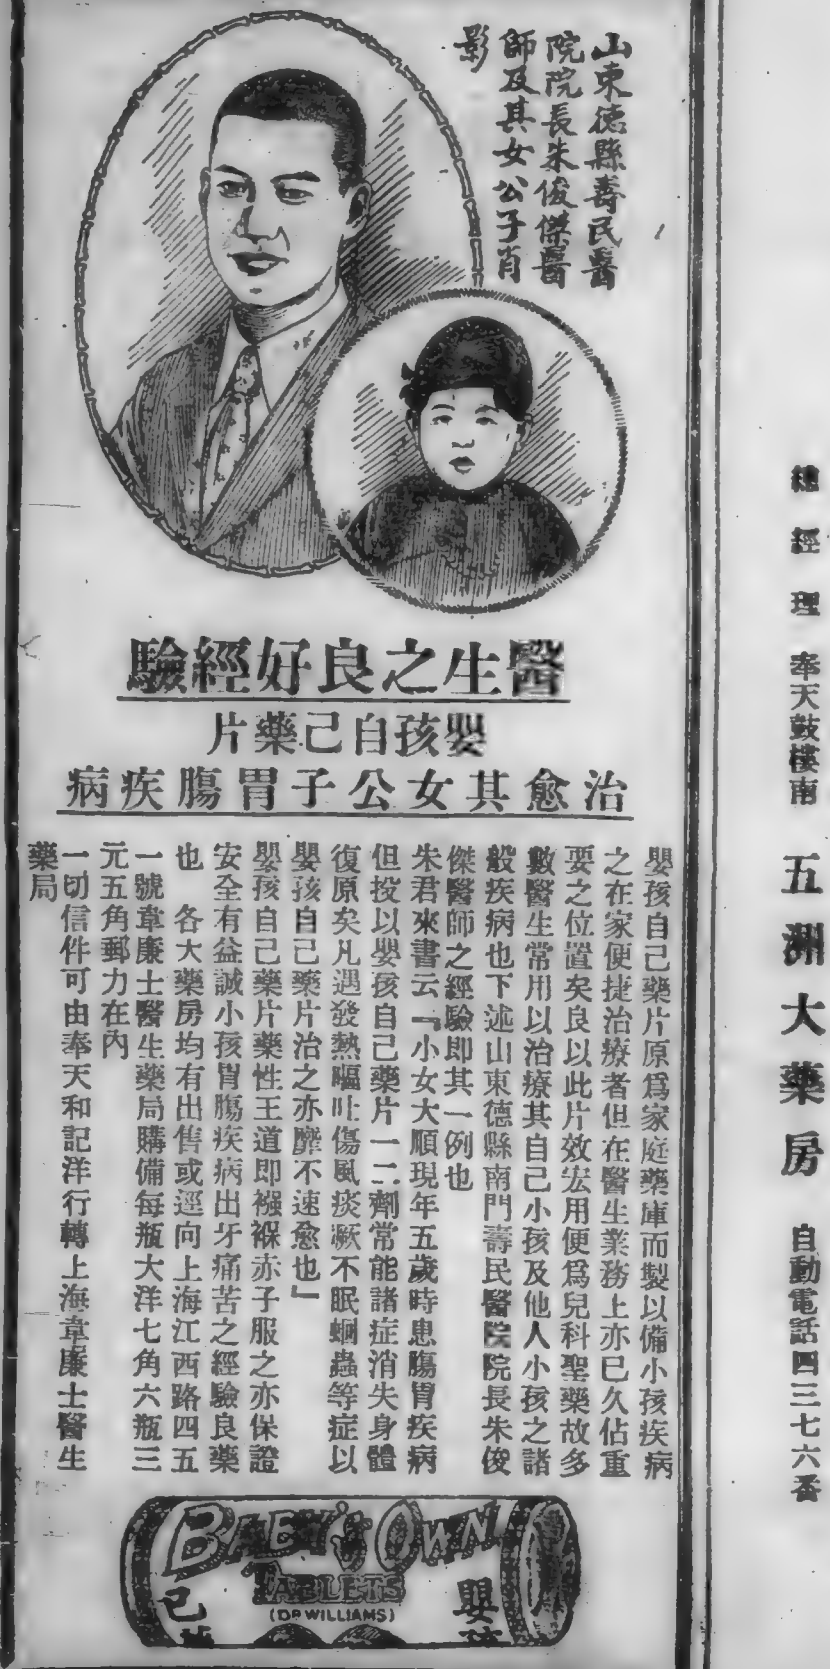 總經理 奉天鼓樓南 五洲大藥房 自動電話四三七六番
山東德縣壽民醫
院院長朱俊傑醫
師及其女公子肖
影
醫生之良好經驗
嬰孩自己藥片
治愈其女公子胃腸疾病
嬰孩自己藥片原爲家庭藥庫而製以備小孩疾病
之在家便捷治療者但在醫生業務上亦已久佔重
要之位置矣良以此片效宏用便爲兒科聖藥故多
數醫生常用以治療其自己小孩及他人小孩之諸
般疾病也下述山東德縣南門壽民醫院院長朱俊
傑醫師之經驗即其一例也
朱君來書云『小女大順現年五歲時患腸胃疾病
但投以嬰孩自己藥片一二劑常能諸症消失身體
復原矣凡遇發熱嘔吐傷風痰厥不眠蛔蟲等症以
嬰孩自己藥片治之亦靡不速愈也』
嬰孩自己藥片藥性王道即襁褓赤子服之亦保證
安全有益誠小孩胃腸疾病出牙痛苦之經驗良藥
也 各大藥房均有出售或逕向上海江西路四五
一號韋廉士醫生藥局購備每瓶大洋七角六瓶三
元五角郵力在內
一切信件可由奉天和記洋行轉上海韋廉士醫生
藥局
BABY'S OWN
TABLETS
(DR WILLIAMS)
嬰
己